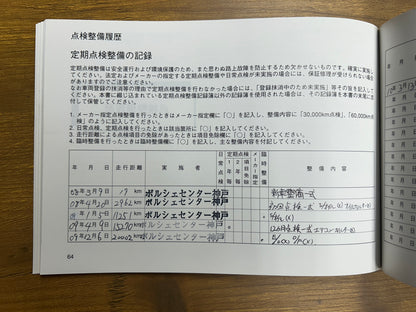 点検整備履歴
定期点検整備の記録
定期点検整備は安全走行および環境保護のため、また思わぬ路上故障を防止するため欠かせないものです。確実に実施し
てください。法定およびメーカーの指定する定期点検整備や日常点検が未実施の場合には、保証修理が受けられない場合
がありますのでご注意ください。
なお車両登録の抹消等の理由で定期点検整備を行わなかった場合には、「登録抹消中のため未実施」等その旨を記入して
ください。本書に綴り込まれている定期点検整備記録簿以外の記録簿を使用された場合は、その記録簿を本書の末尾に添
付して保管してください。
1. メーカー指定点検整備を行ったときはメーカー指定欄に「○」を記入し、整備内容に「30,000km点検」、「60,000km点
検」のように記入してください。
2. 日常点検、定期点検を行ったときは該当箇所に「○」を記入してください。
3. 走行距離による点検項目の免除があったときは項目免除に「○」を記入してください。
4. 臨時整備を行ったときは臨時整備欄に「○」を記入し、主な整備内容を付記してください。
年 月 日 走行距離 実施者 日常点検 定期点検 1年 2年 項目免除 メーカー指定 臨時整備 整備内容
年 3月 9日 17 km ポルシェセンター神戸 新車整備一式
2962 km ポルシェセンター神戸
11251 km ポルシェセンター神戸
09年 4月 9日 13290 km ポルシェセンター神戸 12か月点検一式
09年 12月 6日 20002 km ポルシェセンター神戸
64